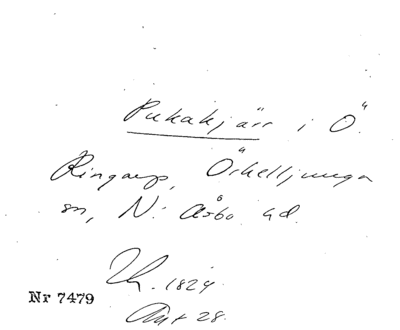 Pukakjärr i Ö
Ringarp, Örkelljunga
sn, N. Åsbo hd.
1824
Nr 7479
Akt 28.